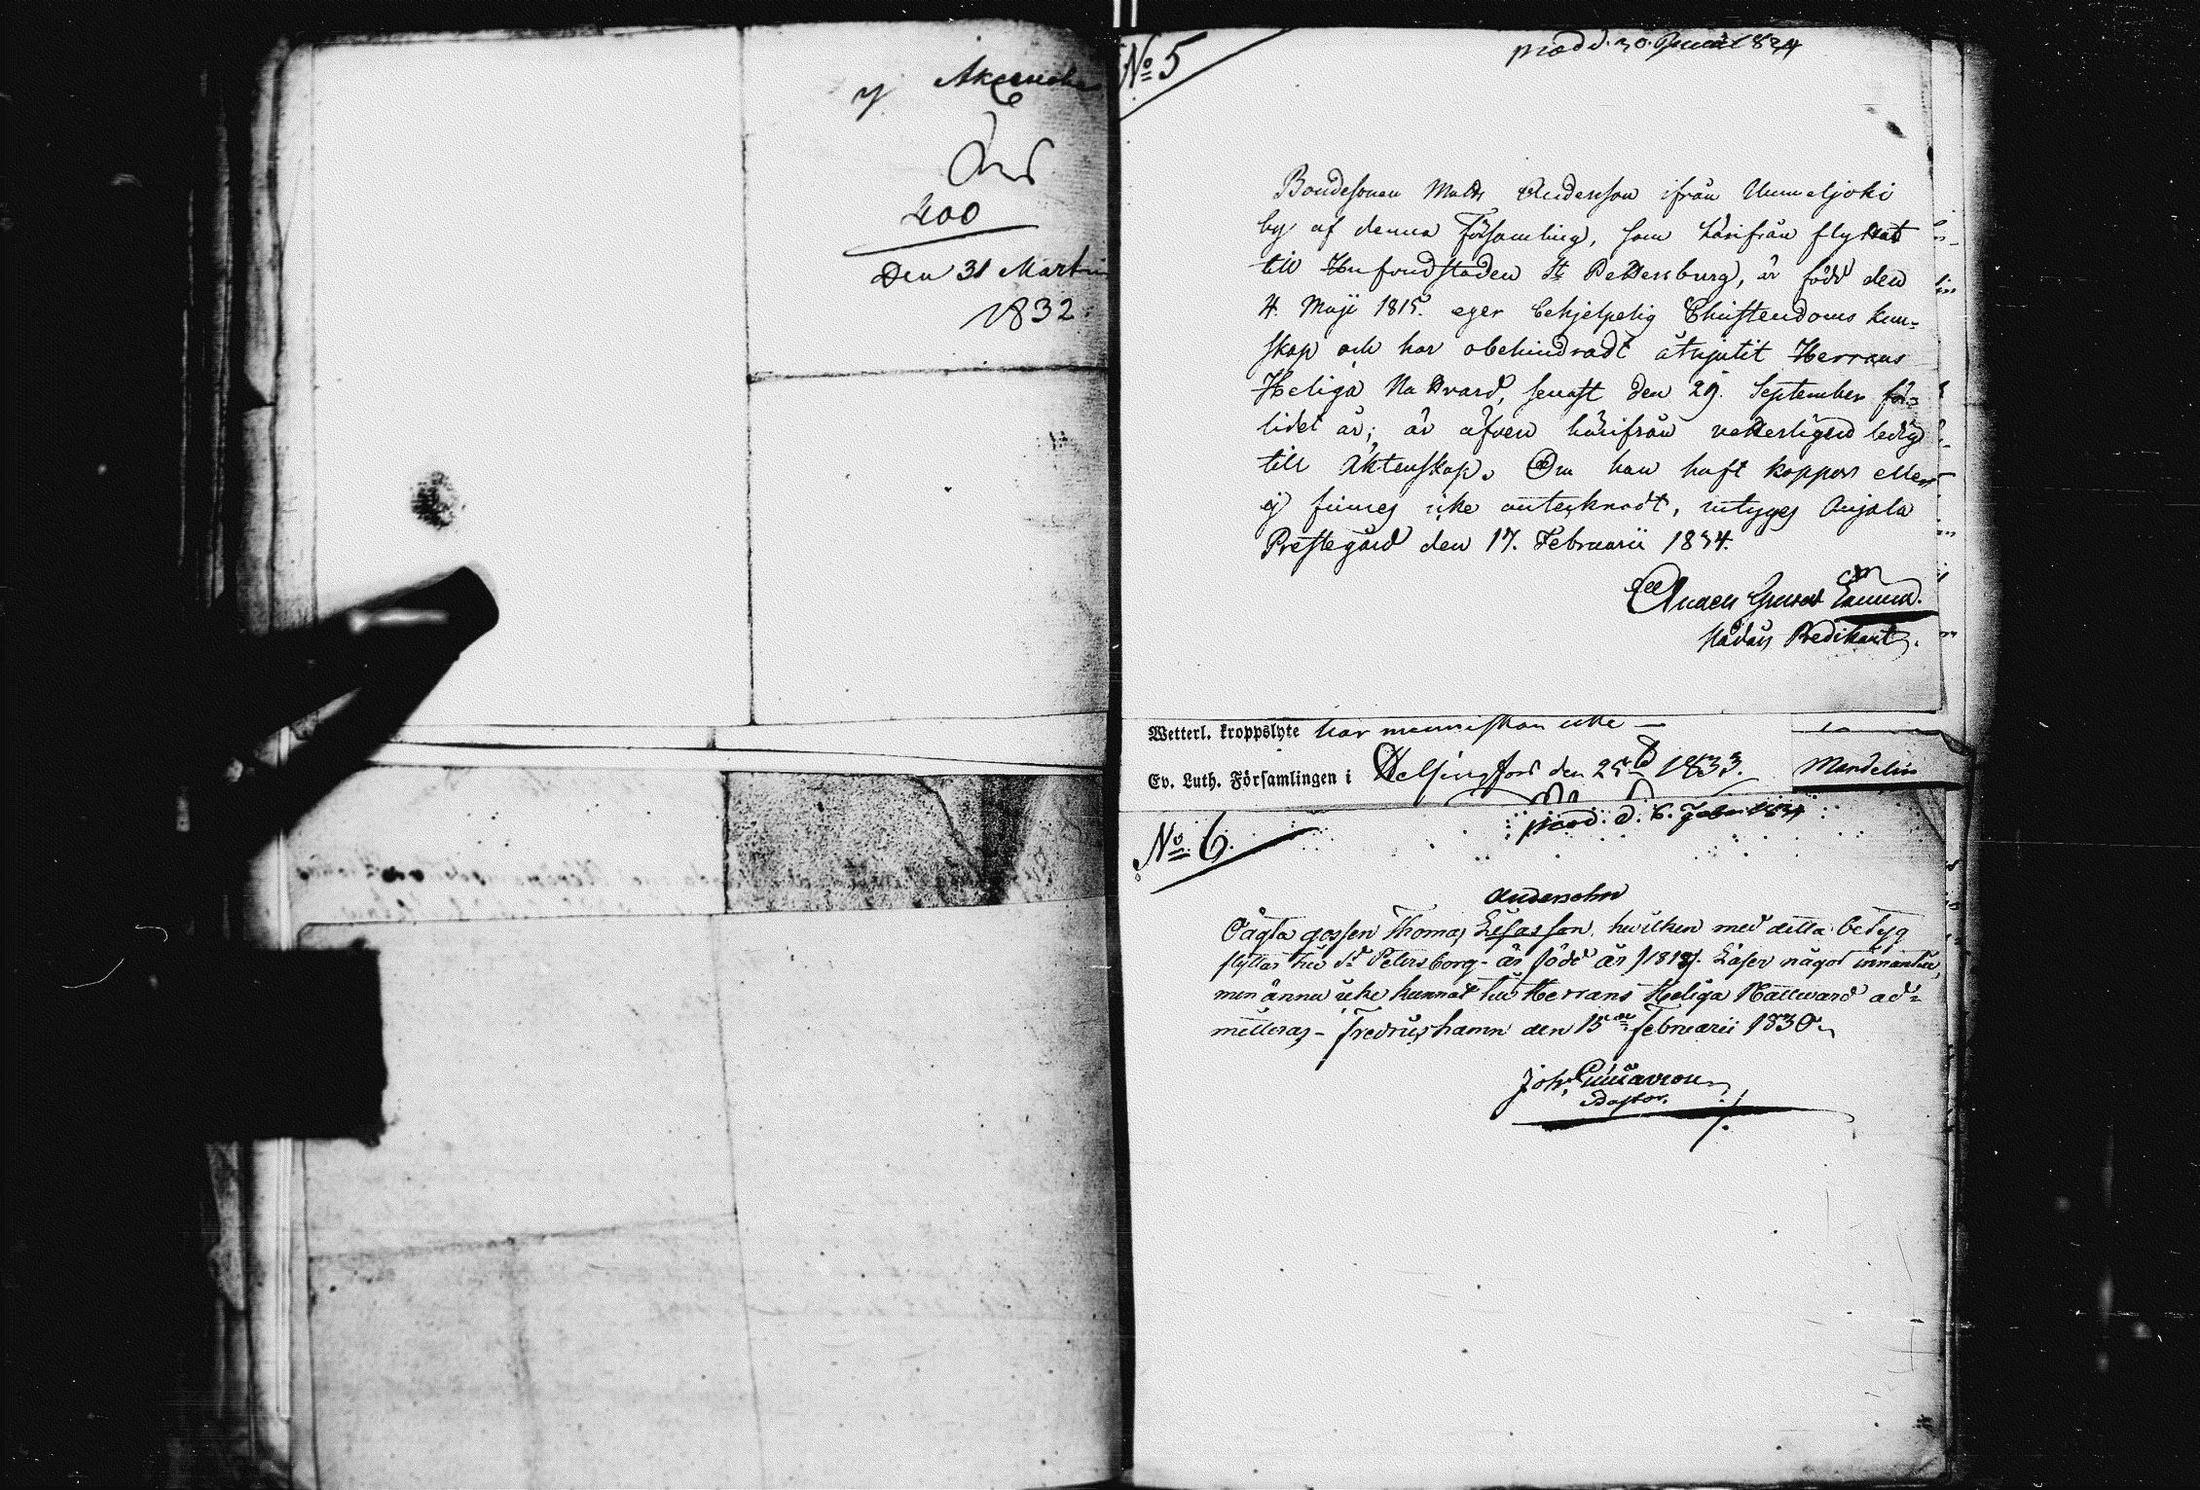 400
Den 31 Martii
1832
No 5
prod d. 30. 1834
Bondesonen Matts Andersson ifrån Ummeljoki
by af denna Församling, som härifrån flyttat
till Hufvudstaden St Pettersburg, är född den
4. Maji 1815. eger behjelpelig Christendoms kun-
skap och har obehindradt åtnjutit Herrans
Heliga Nattvard, senast den 29. September för-
lidet år; är äfven härifrån vetterligen ledig
till Äktenskap. Om han haft koppor eller
ej finnes icke antecknadt, intyges Anjala
Prestegård den 17. Februarii 1834.
Predikant.
Wetterl. kroppslyte har menniskan icke —
Ev. Luth. Församlingen i Helsingfors den 25 1833.
Mandelin
No 6.
prod. d. 6. 1834
Andersohn
Oägta gossen Thomas Lisasson, hvilken med detta betyg
flyttar till St Petersborg - är född år 1818. Läser något innantill,
men ännu icke kunnat till Herrans Heliga Nattvard ad-
mitteras - Fredrikshamn den 15de Februarii 1830
Joh.
Pastor.